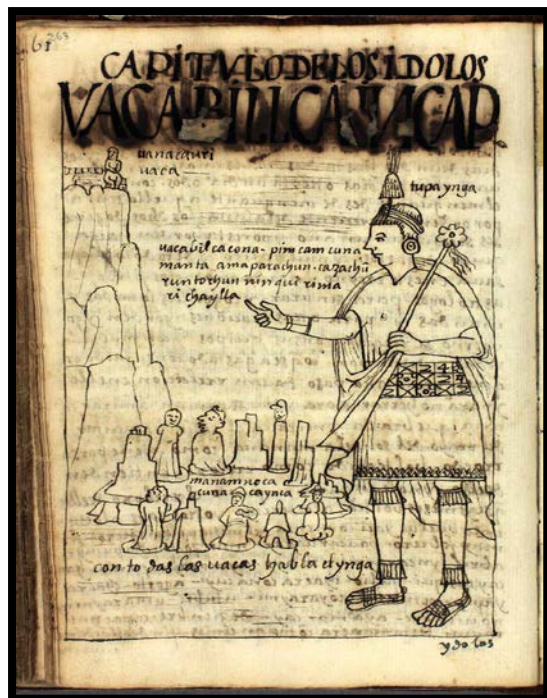 61 263
CAPITVLO DE LOS IDOLOS
VACA BILLCA INCAP
uanacauri
uaca
tupa ynga
uacabilcacona - pim camcuna
manta ama parachun - cazachũ
runtochun ninqui rima
ri chaylla
manam noca
cuna caynca
con to das las uacas habla el ynga
ydolos